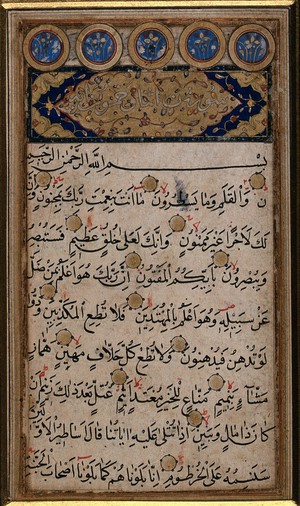 بِسْمِ اللهِ الرَّحْمٰنِ الرَّحِيمِ
نۤ وَالْقَلَمِ وَمَا يَسْطُرُونَ مَا اَنْتَ بِنِعْمَتِ رَبِّكَ بِمَجْنُونٍ وَاِنَّ
لَكَ لَاَجْرًا غَيْرَ مَمْنُونٍ وَاِنَّكَ لَعَلٰى خُلُقٍ عَظِيمٍ فَسَتُبْصِرُ
وَيُبْصِرُونَ بِاَيِّكُمُ الْمَفْتُونُ اِنَّ رَبَّكَ هُوَ اَعْلَمُ بِمَنْ ضَلَّ
عَنْ سَبِيلِهِ وَهُوَ اَعْلَمُ بِالْمُهْتَدِينَ فَلَا تُطِعِ الْمُكَذِّبِينَ وَدُّوا
لَوْ تُدْهِنُ فَيُدْهِنُونَ وَلَا تُطِعْ كُلَّ حَلَّافٍ مَهِينٍ هَمَّازٍ
مَشَّاءٍ بِنَمِيمٍ مَنَّاعٍ لِلْخَيْرِ مُعْتَدٍ اَثِيمٍ عُتُلٍّ بَعْدَ ذٰلِكَ زَنِيمٍ اَنْ
كَانَ ذَا مَالٍ وَبَنِينَ اِذَا تُتْلٰى عَلَيْهِ اٰيَاتُنَا قَالَ اَسَاطِيرُ الْاَوَّلِينَ
سَنَسِمُهُ عَلَى الْخُرْطُومِ اِنَّا بَلَوْنَاهُمْ كَمَا بَلَوْنَا اَصْحَابَ الْجَنَّةِ